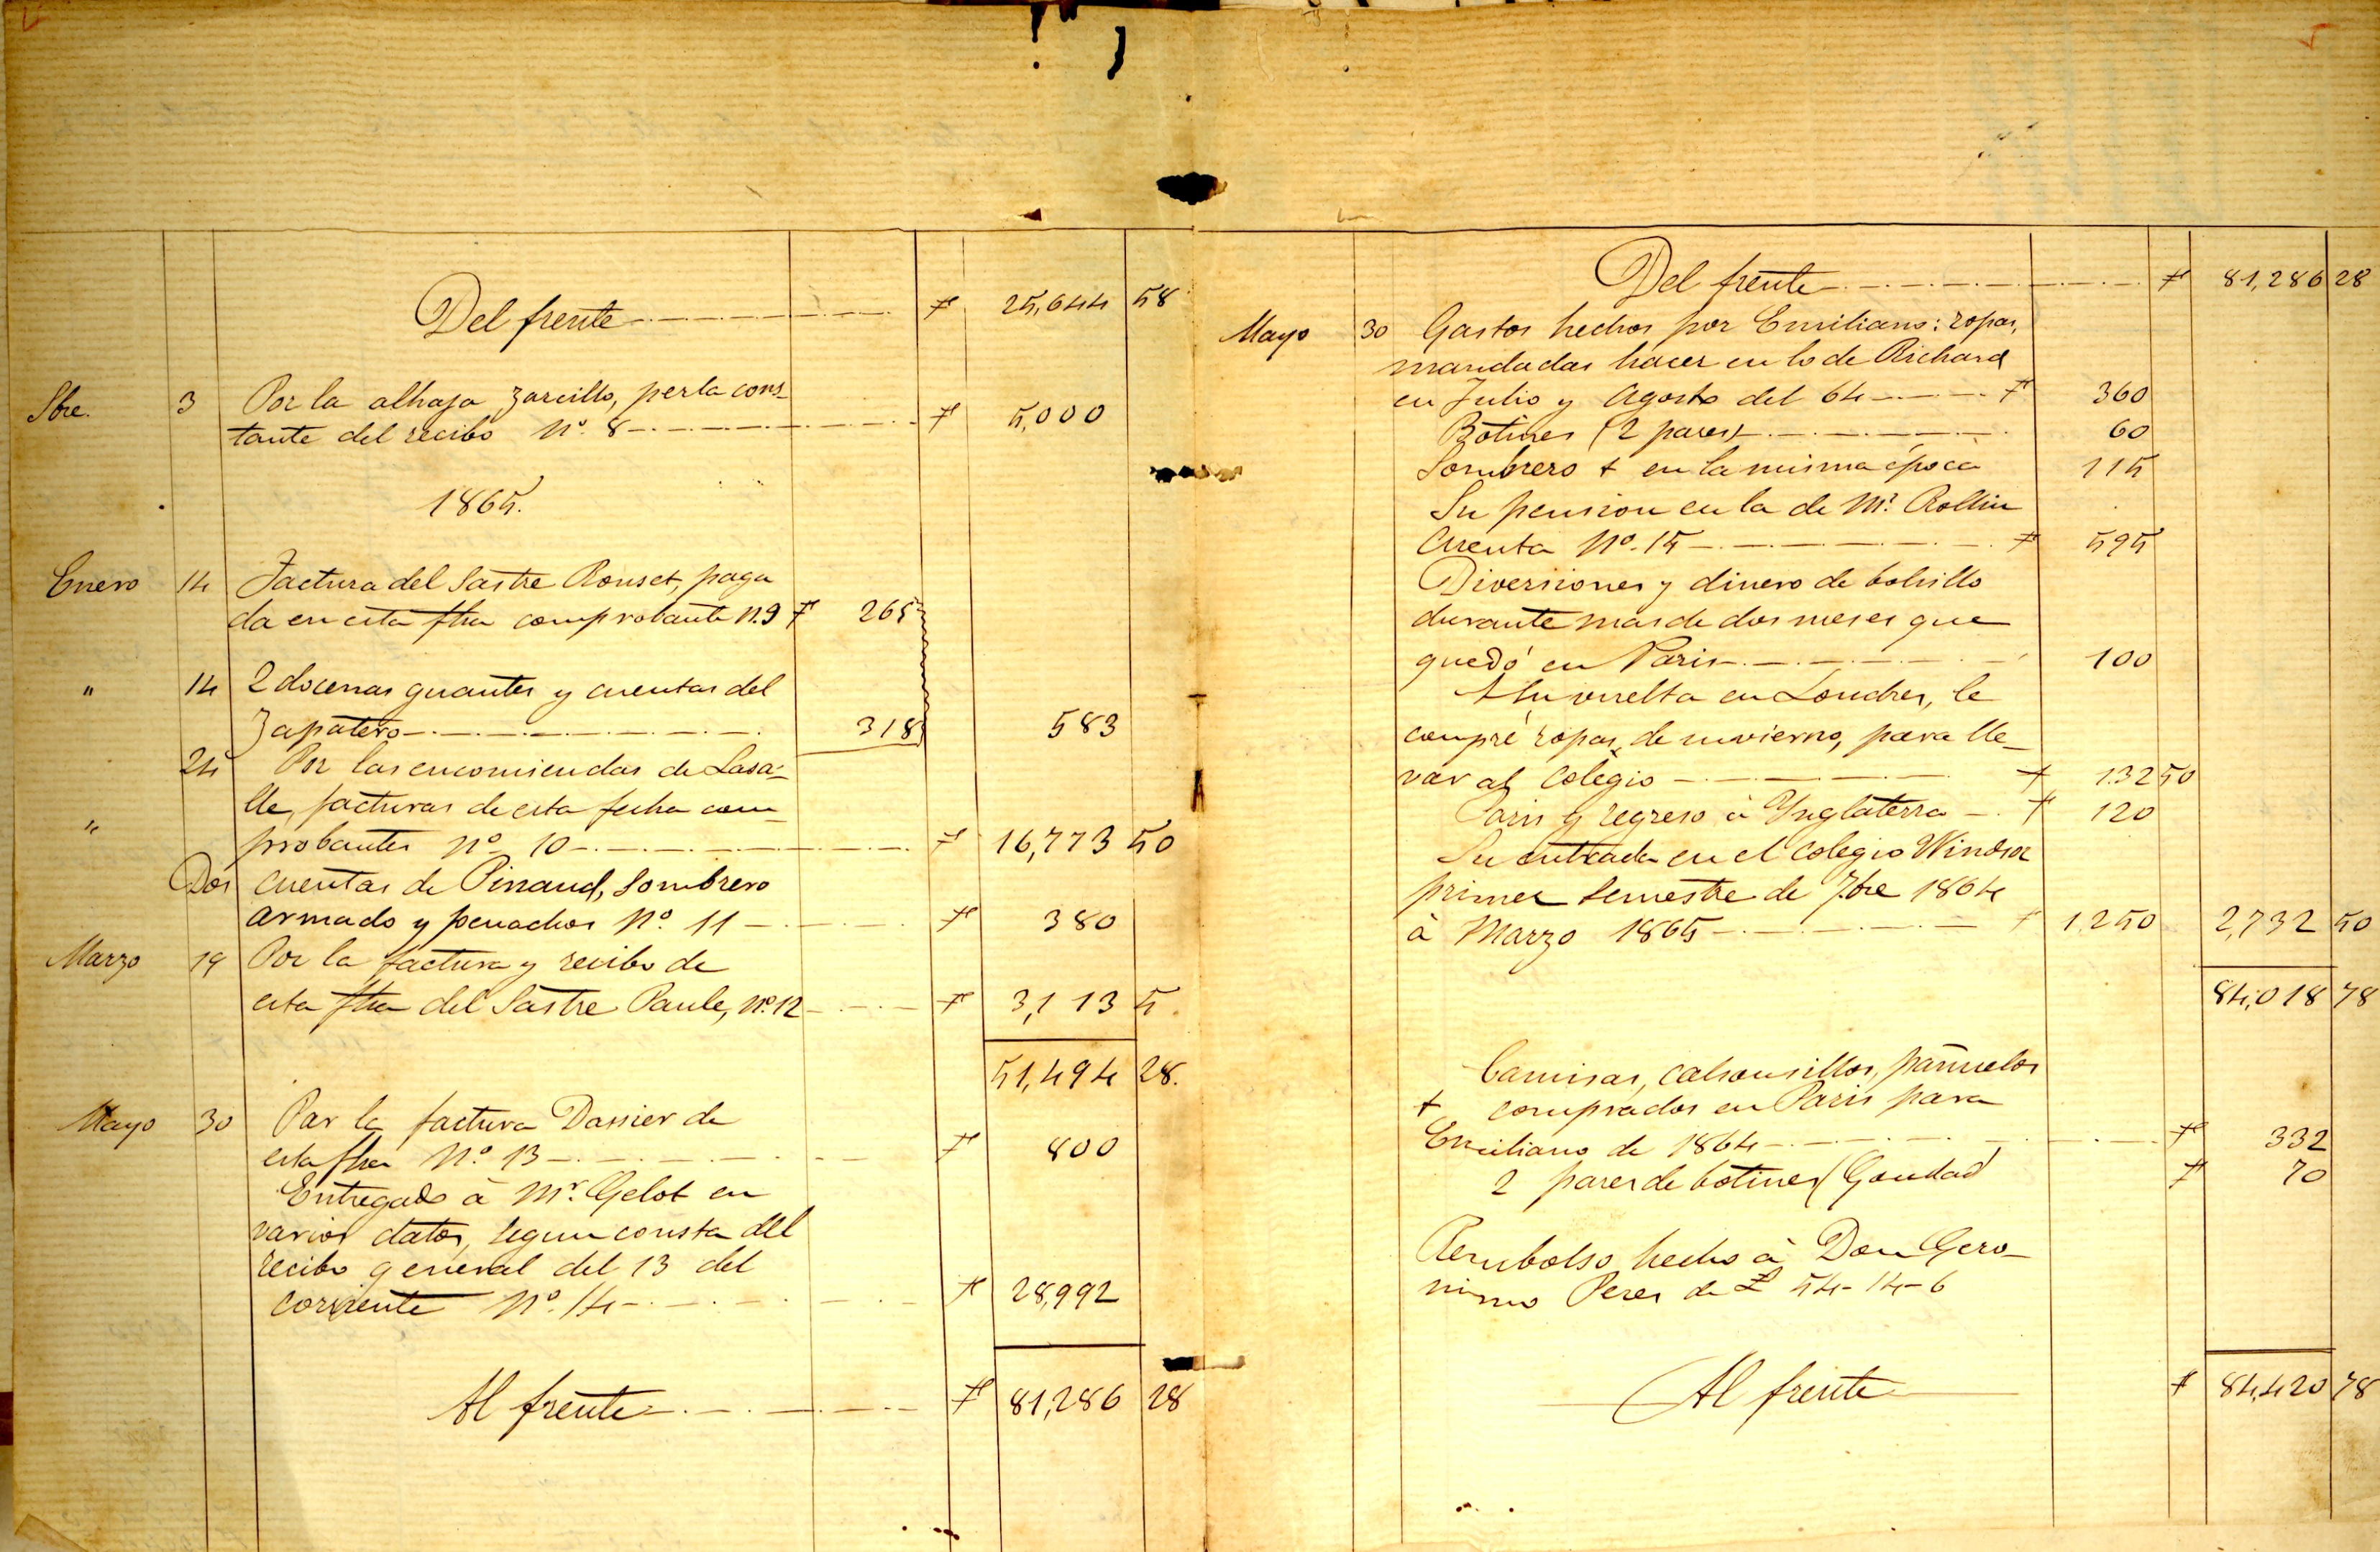 Del frente #25,644 58
Sbre. 3 Por la alhaja zarcillo, perla cons_
tante del recibo Nº. 8 # 5,000
1865.
Enero 14 Factura del Sastre Rouset, paga
da en esta fha comprobante N.9 # 265
" 14 2 docenas guantes y cuentas del
Zapatero 318 583
24 Por las encomiendas de Lasa_
" lle, facturas de esta fecha com_
probantes Nº 10 # 16,773 50
Dos cuentas de Pinaud, Sombrero
armado y penachos Nº. 11 # 380
Marzo 19 Por la factura y recibo de
esta fha del Sastre Paule, Nº.12 # 3,113 5
51,494 28.
Mayo 30 Por la factura Dassier de
esta fha Nº. 13 # 800
Entregado à Mr. Gelot en
varios datos, segun consta del
recibo general del 13 del
corriente Nº. 14 # 28,992
Al frente # 81,286 28
Del frente # 81,286 28
Mayo 30 Gastos hechos por Emiliano: ropas,
mandadas hacer en lo de Richard
en Julio y Agosto del 64 # 360
Botines (2 pares) 60
Sombrero + en la misma época 115
Su pension en la de Mr. Rollin
Cuenta Nº. 15 # 595
Diversiones y dinero de bolsillo
durante mas de dos meses que
quedó en Paris 100
A su vuelta en Londres, le
compré ropas de invierno, para lle_
var al Colegio # 132 50
Paris y regreso à Ynglaterra # 120
Su entrada en el Colegio Windsor
primer Semestre de 7bre 1864
à Marzo 1865 # 1.250 2,732 50
84,018 78
Camisas, calsonsillos, pañuelos
+ comprados en Paris para
Emiliano de 1864 # 332
2 pares de botines (Goudad # 70
Rembolso hecho à Don Gero_
nimo Peres de £ 54-14-6
Al frente # 84,420 78